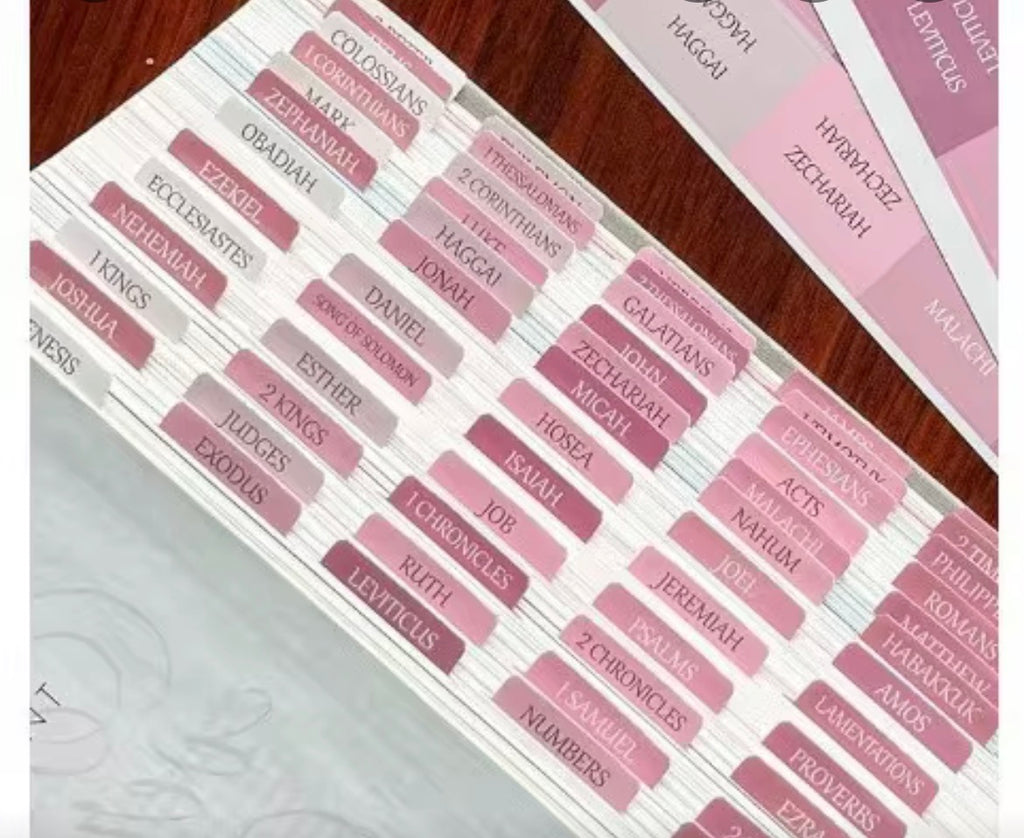 COLOSSIANS
1 CORINTHIANS
MARK
ZEPHANIAH
OBADIAH
EZEKIEL
ECCLESIASTES
NEHEMIAH
1 KINGS
JOSHUA
ENESIS
1 THESSALONIANS
2 CORINTHIANS
LUKE
HAGGAI
JONAH
DANIEL
SONG OF SOLOMON
ESTHER
2 KINGS
JUDGES
EXODUS
2 THESSALONIANS
GALATIANS
JOHN
ZECHARIAH
MICAH
HOSEA
ISAIAH
JOB
1 CHRONICLES
RUTH
LEVITICUS
1 TIMOTHY
EPHESIANS
ACTS
MALACHI
NAHUM
JOEL
JEREMIAH
PSALMS
2 CHRONICLES
1 SAMUEL
NUMBERS
2 TIM
PHILIPP
ROMANS
MATTHEW
HABAKKUK
AMOS
LAMENTATIONS
PROVERBS
EZRA
2
HAGGAI
HAGGAI
ZECHARIAH
ZECHARIAH
MALACHI
LEVITICUS
LEVITIC